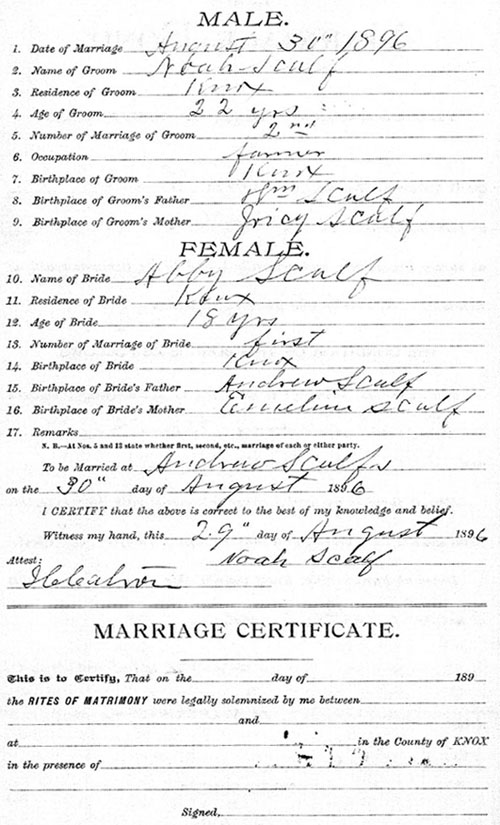 MALE.
1. Date of Marriage August 30" 1896
2. Name of Groom Noah Scalf
3. Residence of Groom Knox
4. Age of Groom 22 yrs
5. Number of Marriage of Groom 2nd
6. Occupation farmer
7. Birthplace of Groom Knox
8. Birthplace of Groom's Father Wm Scalf
9. Birthplace of Groom's Mother Scalf
FEMALE.
10. Name of Bride Abby Scalf
11. Residence of Bride Knox
12. Age of Bride 18 yrs
13. Number of Marriage of Bride first
14. Birthplace of Bride Knox
15. Birthplace of Bride's Father Andrew Scalf
16. Birthplace of Bride's Mother Emeline Scalf
17. Remarks
N. B.—At Nos. 5 and 13 state whether first, second, etc., marriage of each or either party.
To be Married at Andrew Scalfs
on the 30" day of August 1896
I CERTIFY that the above is correct to the best of my knowledge and belief.
Witness my hand, this 29" day of August 1896
Attest: Noah Scalf
MARRIAGE CERTIFICATE.
This is to Certify, That on the day of 189
the RITES OF MATRIMONY were legally solemnized by me between
and
at in the County of KNOX
in the presence of
Signed,